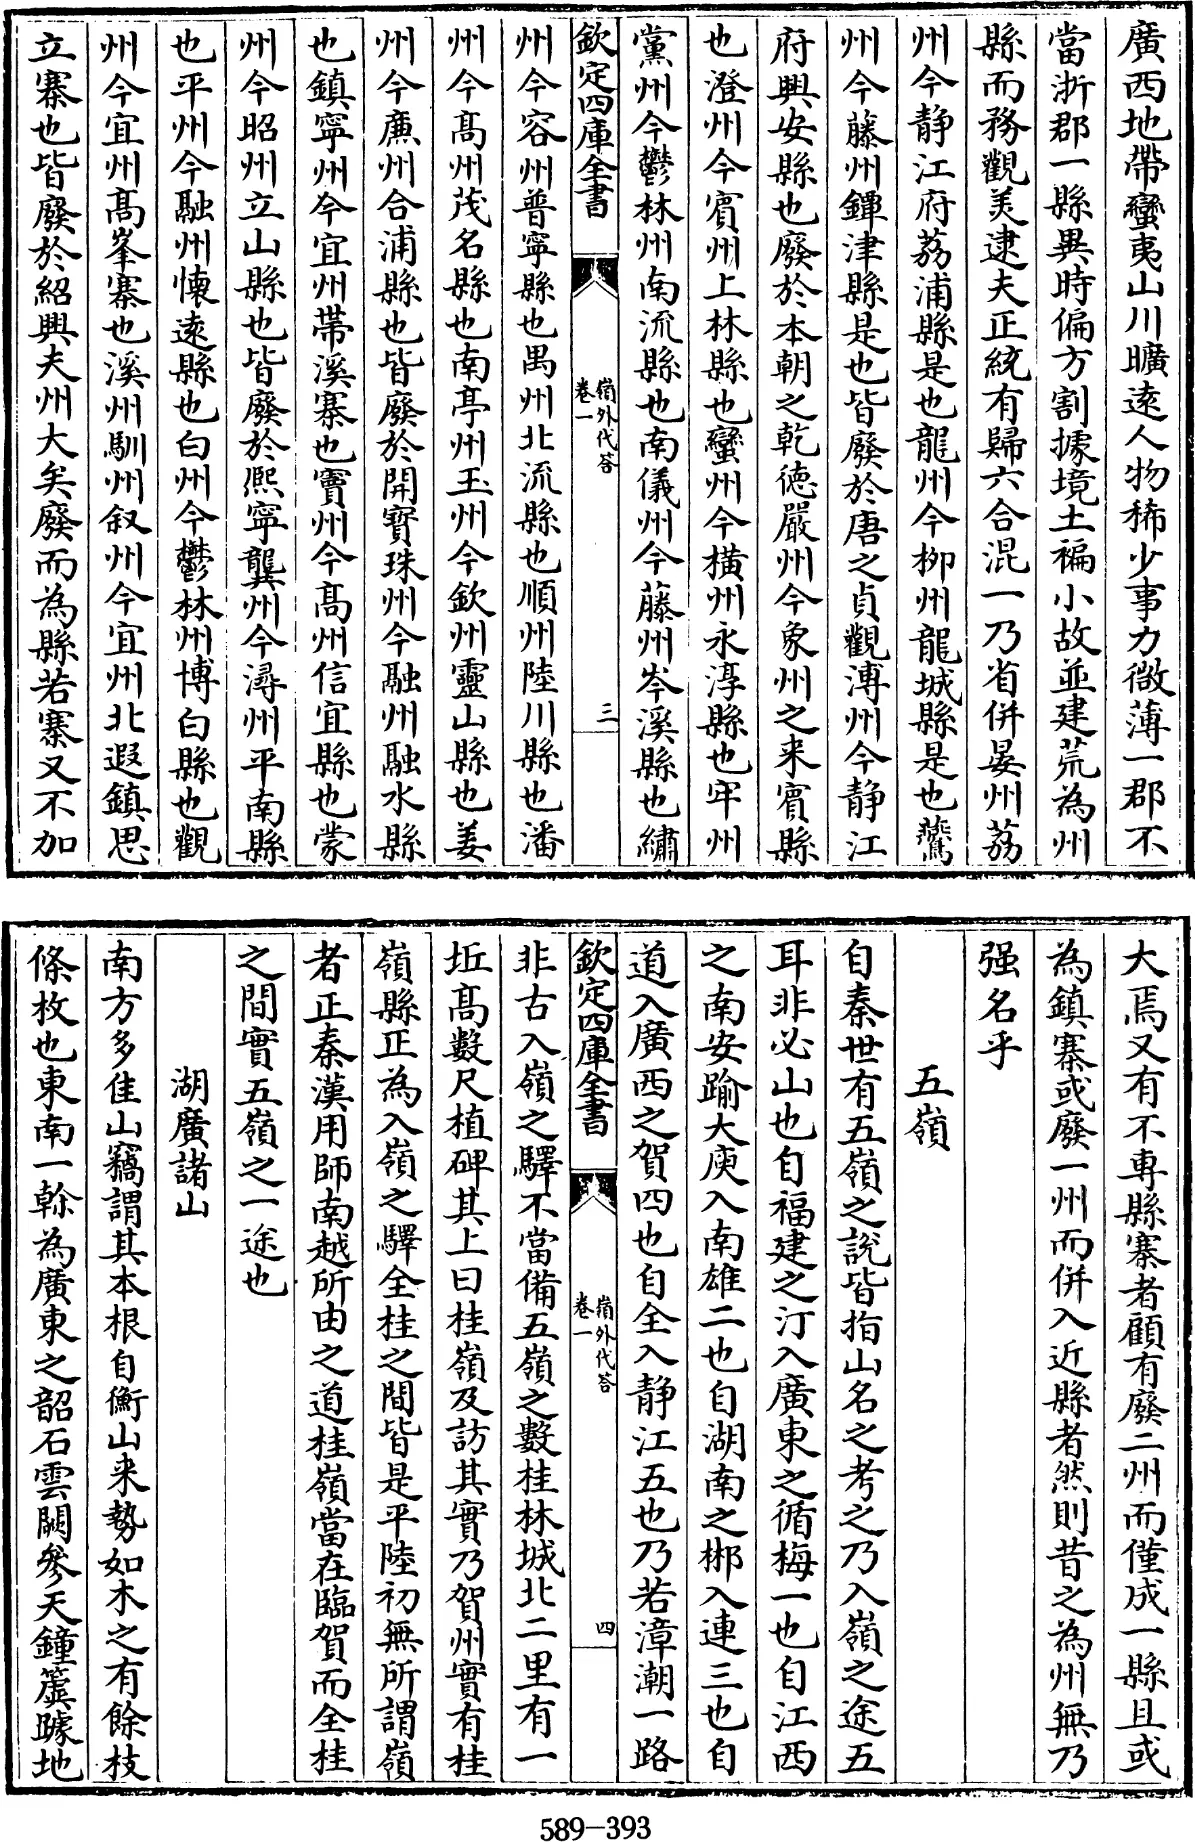 廣西地帶蠻夷山川曠逺人物稀少事力微薄一郡不
當浙郡一縣異時偏方割據境土褊小故並建荒為州
縣而務觀美逮夫正統有歸六合混一乃省併晏州荔
州今静江府荔浦縣是也龍州今栁州龍城縣是也鷰
州今藤州鐔津縣是也皆廢於唐之貞觀溥州今静江
府興安縣也廢於本朝之乾德嚴州今象州之来賓縣
也澄州今賓州上林縣也蠻州今橫州永淳縣也牢州
黨州今鬱林州南流縣也南儀州今藤州岑溪縣也繡
欽定四庫全書
嶺外代答
卷一
三
州今容州普寧縣也禺州北流縣也順州陸川縣也潘
州今髙州茂名縣也南亭州玉州今欽州靈山縣也姜
州今亷州合浦縣也皆廢於開寳珠州今融州融水縣
也鎮寧州今宜州帶溪寨也竇州今髙州信宜縣也蒙
州今昭州立山縣也皆廢於熈寧龔州今潯州平南縣
也平州今融州懐逺縣也白州今鬱林州博白縣也觀
州今宜州髙峯寨也溪州馴州叙州今宜州北遐鎮思
立寨也皆廢於紹興夫州大矣廢而為縣若寨又不加
大焉又有不専縣寨者顧有廢二州而僅成一縣且或
為鎮寨或廢一州而併入近縣者然則昔之為州無乃
强名乎
五嶺
自秦世有五嶺之說皆指山名之考之乃入嶺之途五
耳非必山也自福建之汀入廣東之循梅一也自江西
之南安踰大庾入南雄二也自湖南之郴入連三也自
道入廣西之賀四也自全入静江五也乃若漳潮一路
欽定四庫全書
嶺外代答
卷一
四
非古入嶺之驛不當備五嶺之數桂林城北二里有一
坵髙數尺植碑其上曰桂嶺及訪其實乃賀州實有桂
嶺縣正為入嶺之驛全桂之間皆是平陸初無所謂嶺
者正秦漢用師南越所由之道桂嶺當在臨賀而全桂
之間實五嶺之一途也
湖廣諸山
南方多佳山竊謂其本根自衡山来勢如木之有餘枝
條枚也東南一榦為廣東之韶石雲闕參天鐘簴躆地
589-393